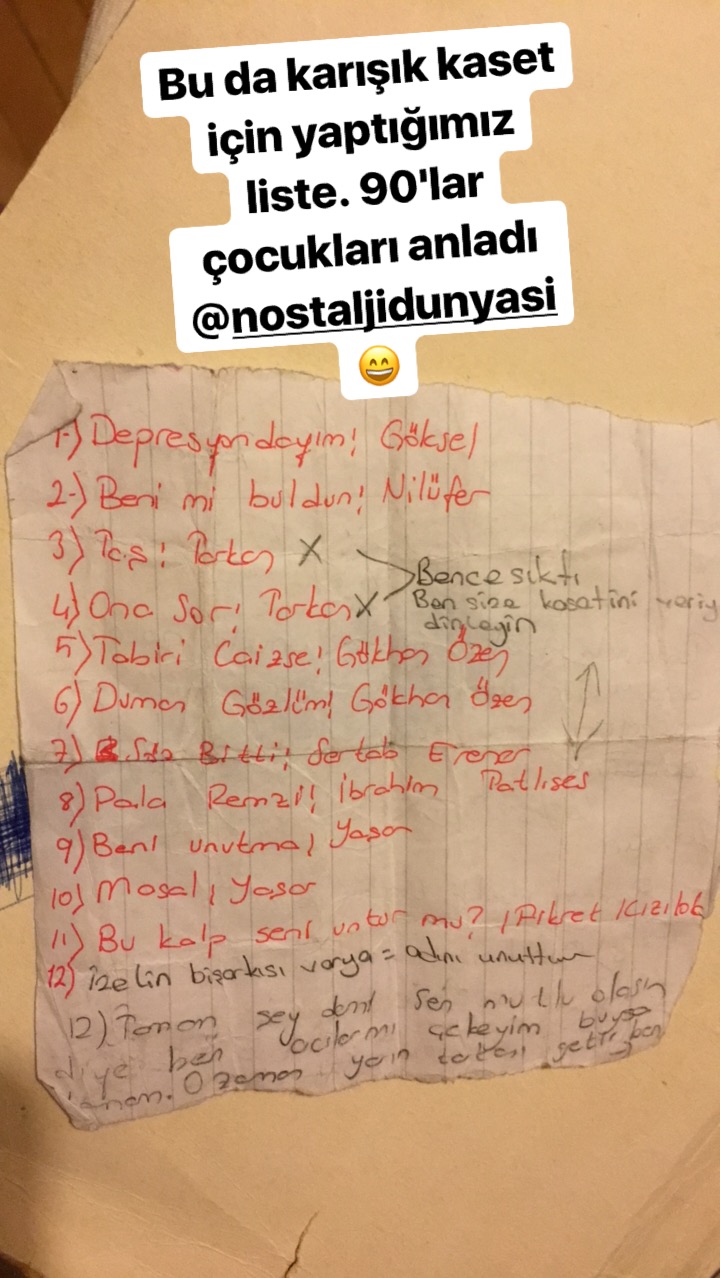 Bu da karışık kaset
için yaptığımız
liste. 90'lar
çocukları anladı
@nostaljidunyasi
😄
1-) Depresyondayım! Göksel
2-) Beni mi buldun! Nilüfer
3) Taş! Tarkan X
Bence sıktı
4) Ona Sor! Tarkan X
Ben size kasetini veriy
dinleyin
5) Tabiri Caizse! Gökhan Özen
6) Duman Gözlüm! Gökhan Özen
7) Bitti! Sertab Erener
8) Pala Remzi! İbrahim Tatlıses
9) Beni unutma! Yaşar
10) Masal! Yaşar
11) Bu kalp seni unutur mu? ! Fikret Kızılok
12) İzelin bişarkısı varya = adını unuttum
12) Taman şey demi sen mutlu olasın
diye ben acılarmı çekeyim buysa
O zaman yarın getir ben